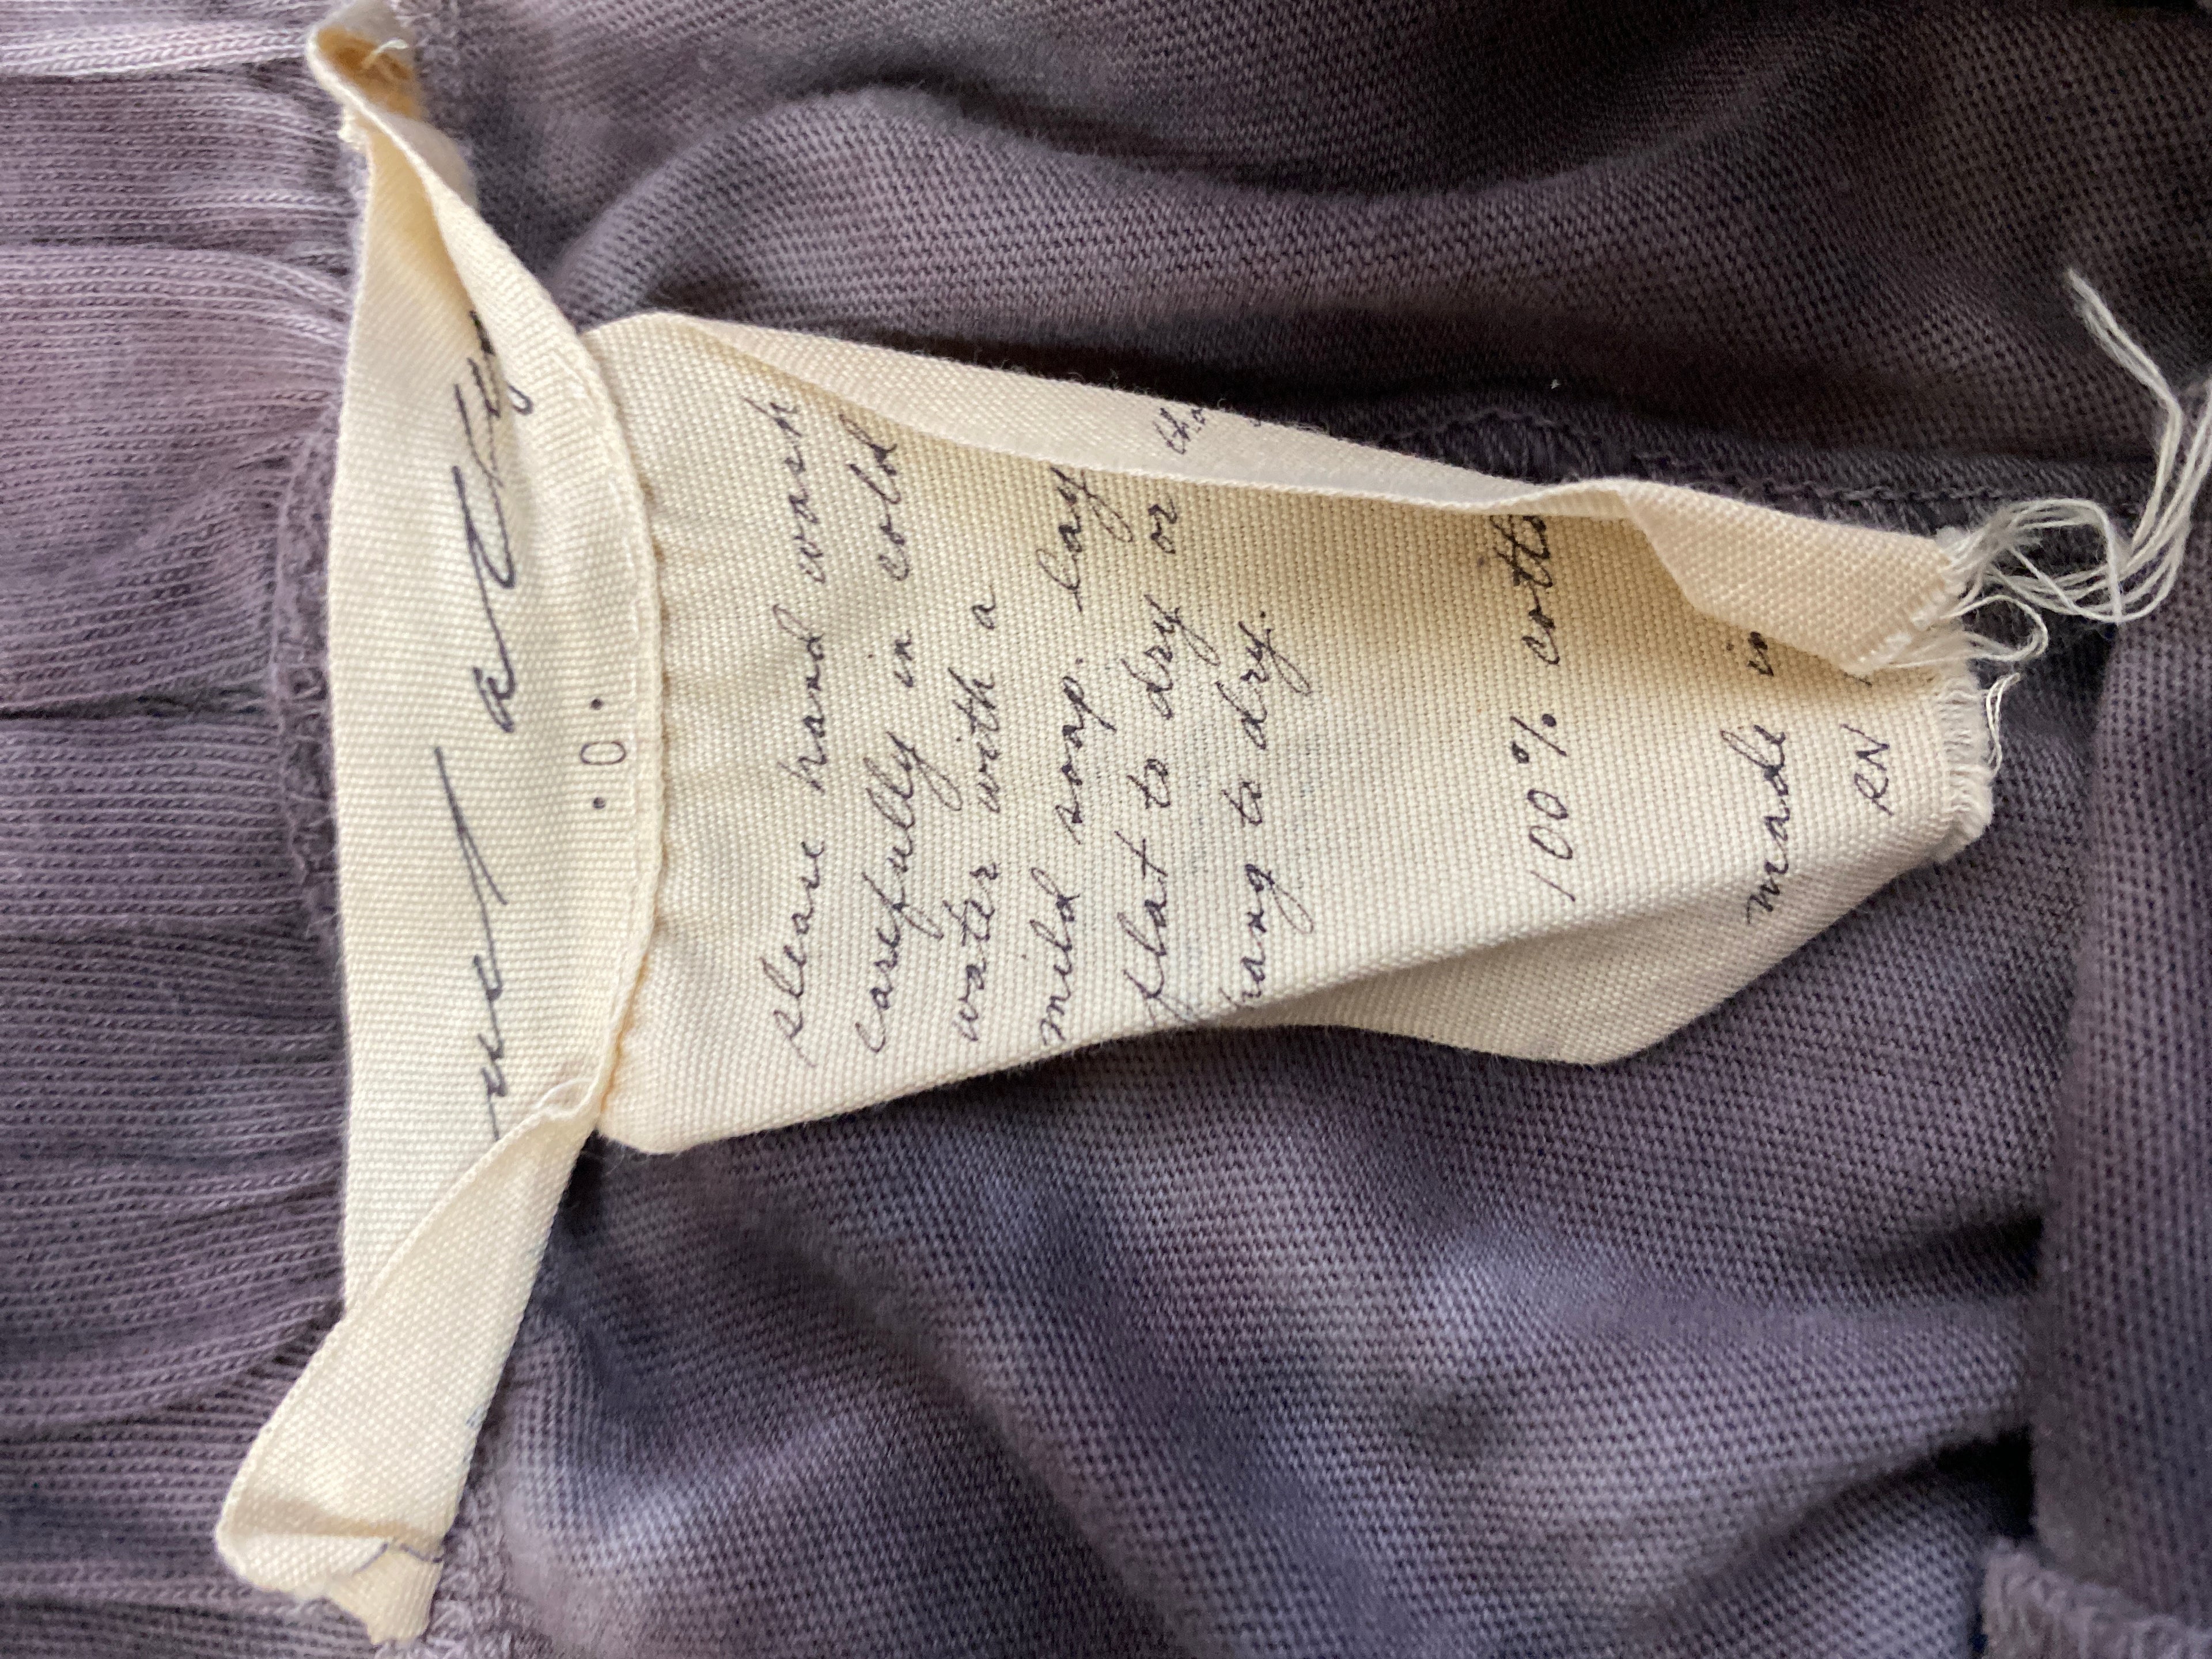 .0.
please hand wash
carefully in cold
water with a
mild soap. lay
flat to dry or
hang to dry.
100% cotto
made in
RN